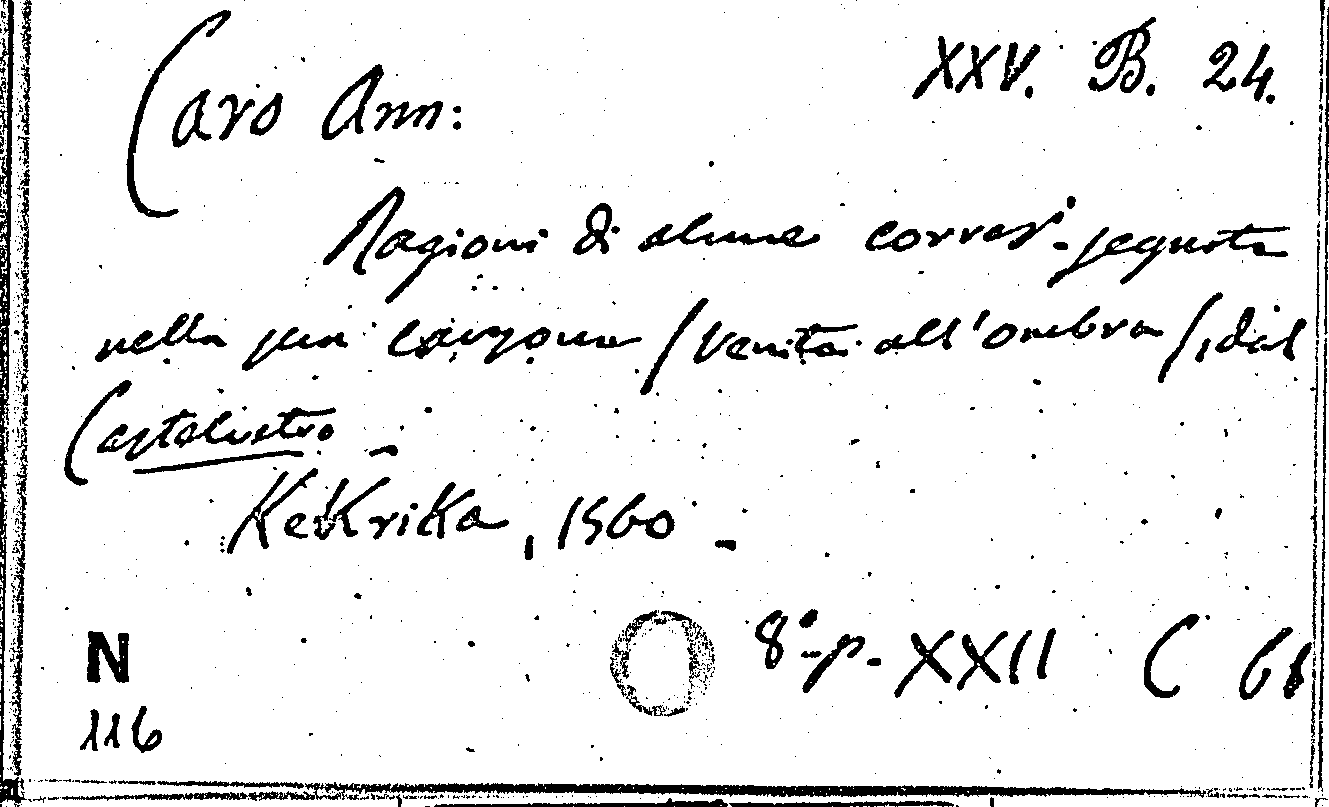 XXV. B. 24.
Caro Ann:
Ragioni di alcune cose segnate
nella sua canzone / Venite all'ombra /, dal
Castelvetro -
1560 -
8°-p. XXII C
N
116